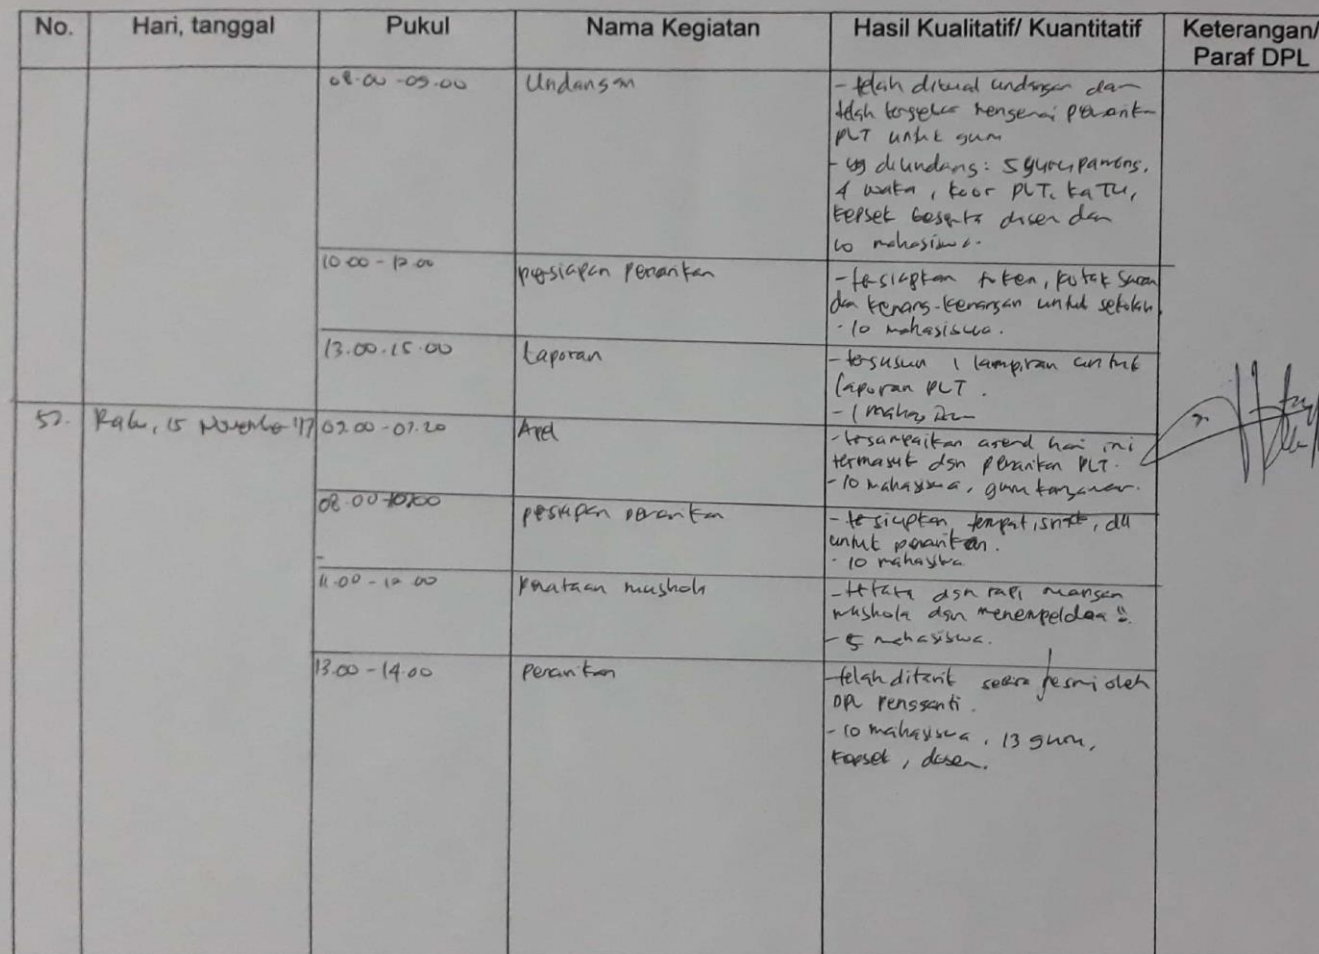 No. Hari, tanggal Pukul Nama Kegiatan Hasil Kualitatif/ Kuantitatif Keterangan/
Paraf DPL
08.00 -09.00 Undangan - telah dibuat undangan dan
telah tersebar mengenai penarikan
PLT untuk guru
- yg diundang: 5 guru pamong,
4 waka, koor PLT, ka TU,
kepsek beserta dosen dan
10 mahasiswa.
10.00 - 12.00 persiapan penarikan - tersiapkan token, kotak saran
dan kenang-kenangan untuk sekolah
- 10 mahasiswa.
13.00.15.00 Laporan - tersusun 1 lampiran untuk
laporan PLT.
- 1 mahasiswa
52. Rabu, 15 November '17 07.00 -07.20 Apel - tersampaikan agend hari ini
termasuk dgn penarikan PLT.
- 10 mahasiswa, guru karyawan.
08.00 -10.00 persiapan penarikan - tersiapkan, tempat, snack, dll
untuk penarikan.
- 10 mahasiswa
11.00 - 12.00 penataan mushola - tertata dgn rapi ruangan
mushola dgn
- 5 mahasiswa.
13.00 - 14.00 Penarikan - telah ditarik secara resmi oleh
DPL pengganti.
- 10 mahasiswa, 13 guru,
kepsek, dosen.